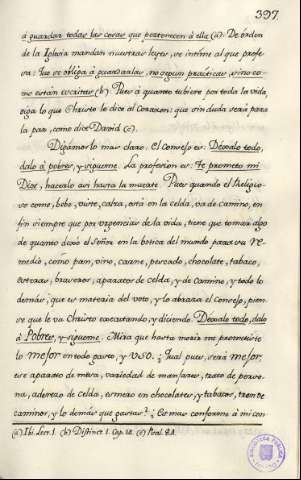 397.
á guardar todas las cosas que pertenecen á ella (a). De órden
de la Iglesia mandan nuestras leyes, se intíme al que profe-
sa: que se obliga á guardarlas, no segun practicar, sino co-
mo están escritas (b). Pues á quanto tubiere por toda la vida,
oiga lo que Christo le dice al Corazon: que sin duda será para
la paz, como dice David (c).
Digámoslo mas claro. El consejo es: Déxalo todo,
dalo á pobres, y sigueme. La profesion es: Te prometo mi
Dios, hacerlo así hasta la muerte. Pues quando el Religio-
so come, bebe, viste, calza, está en la celda, va de camino, en
fin siempre que por urgencias de la vida, tiene que tomar algo
de quanto dexó el Señor en la botica del mundo para su re-
medio, como pan, vino, carne, pescado, chocolate, tabaco,
esteras, braseros, aparatos de celda, y de camino, y todo lo
demás, que es materia del voto, y lo abraza el Consejo, pien-
se que le va Christo executando, y diciendo: Déxalo todo, dalo
á Pobres, y sigueme. Mira que hasta morir me prometiste
lo mejor en todo gasto, y uso. ¿Qual pues, será mejor
ese aparato de mesa, variedad de manjares, trato de perso-
na, aderezo de celda, esmero en chocolates, y tabacos, tren de
caminos, y lo demás que gastas? ¿Es mas conforme á mi con-
(a) Ibi. Lect. 1. (b) Distinc. 1. Cap. 18. (c) Psal. 84.
BIBLIOTECA PUBLICA